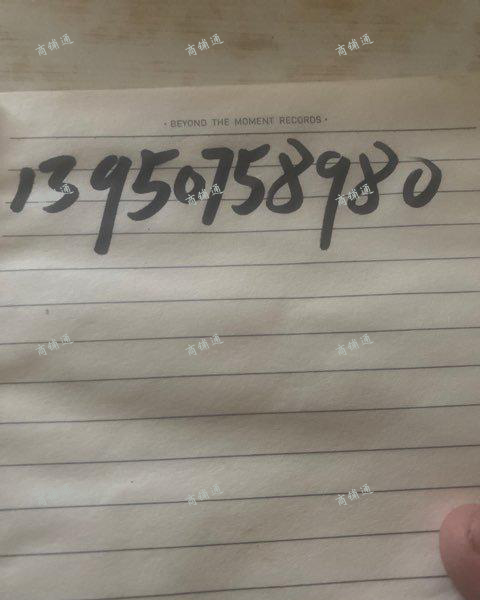 商铺通 商铺通 商铺通
· BEYOND THE MOMENT RECORDS ·
13950758980
商铺通 商铺通 商铺通
商铺通 商铺通 商铺通
商铺通 商铺通